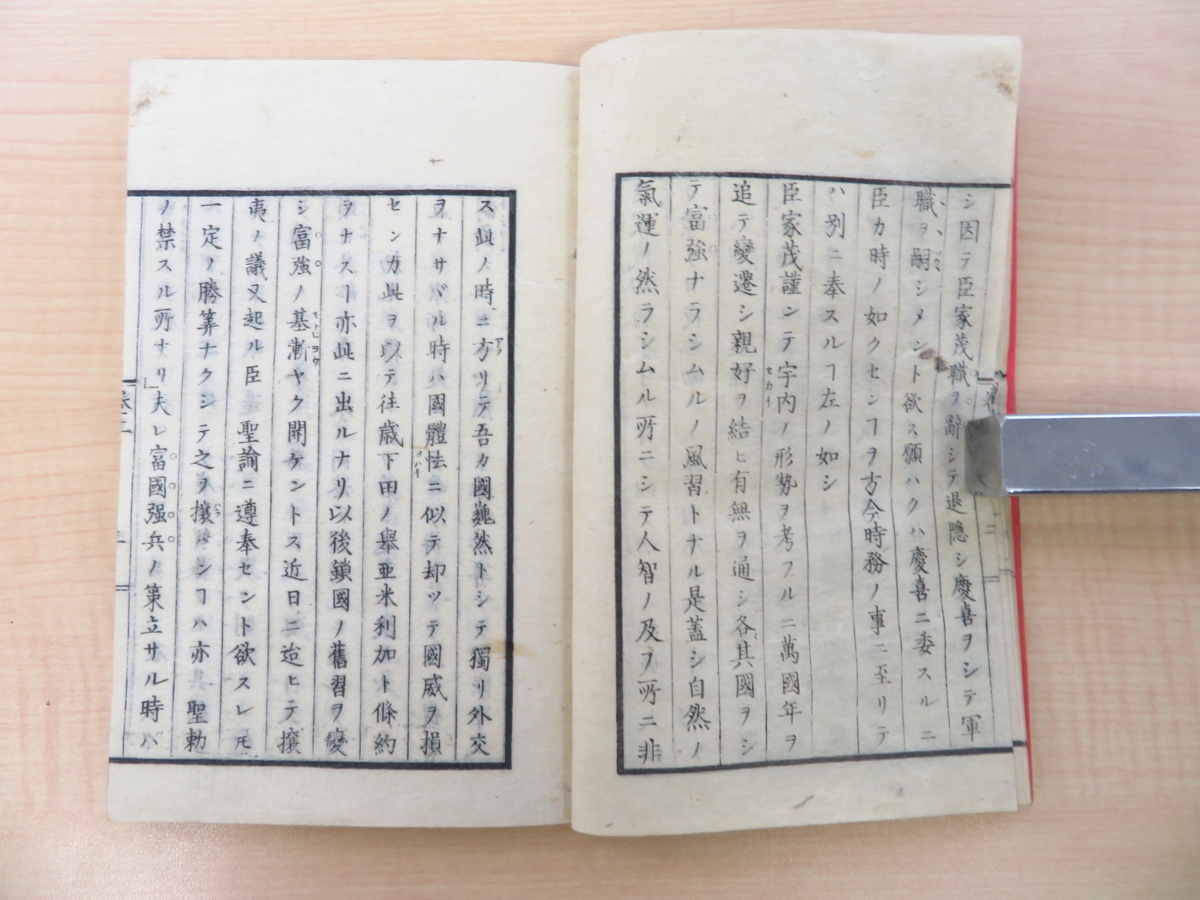 シ因テ臣家茂職ヲ辭シテ退隠シ慶喜ヲシテ軍
職ヲ嗣シメント欲ス願ハクハ慶喜ニ委スルニ
臣カ時ノ如クセンヿヲ方今時務ノ事ニ至リテ
ハ別ニ奉スルヿ左ノ如シ
臣家茂謹ンテ宇内ノ形勢ヲ考フルニ萬國年ヲ
セカイ
追テ變遷シ親好ヲ結ヒ有無ヲ通シ各其國ヲシ
テ富強ナラシムルノ風習トナル是蓋シ自然ノ
氣運ノ然ラシムル所ニシテ人智ノ及フ所ニ非
ス此ノ時ニ方リテ吾カ國巍然トシテ獨リ外交
ヲナサヾル時ハ國體怯ニ似テ却ツテ國威ヲ損
センカ此ヲ以テ往歳下田ノ擧亜米利加ト條約
ヲナスヿ亦此ニ出ルナリ以後鎖國ノ舊習ヲ變
シ富強ノ基漸ヤク開ケントス近日ニ迨ヒテ攘
夷ノ議又起ル臣聖諭ニ遵奉セント欲スレ𪜈
一定ノ勝筭ナクシテ之ヲ攘ハンヿハ亦其聖勅
ノ禁スル所ナリ」夫レ富國强兵ノ策立サル時ハ